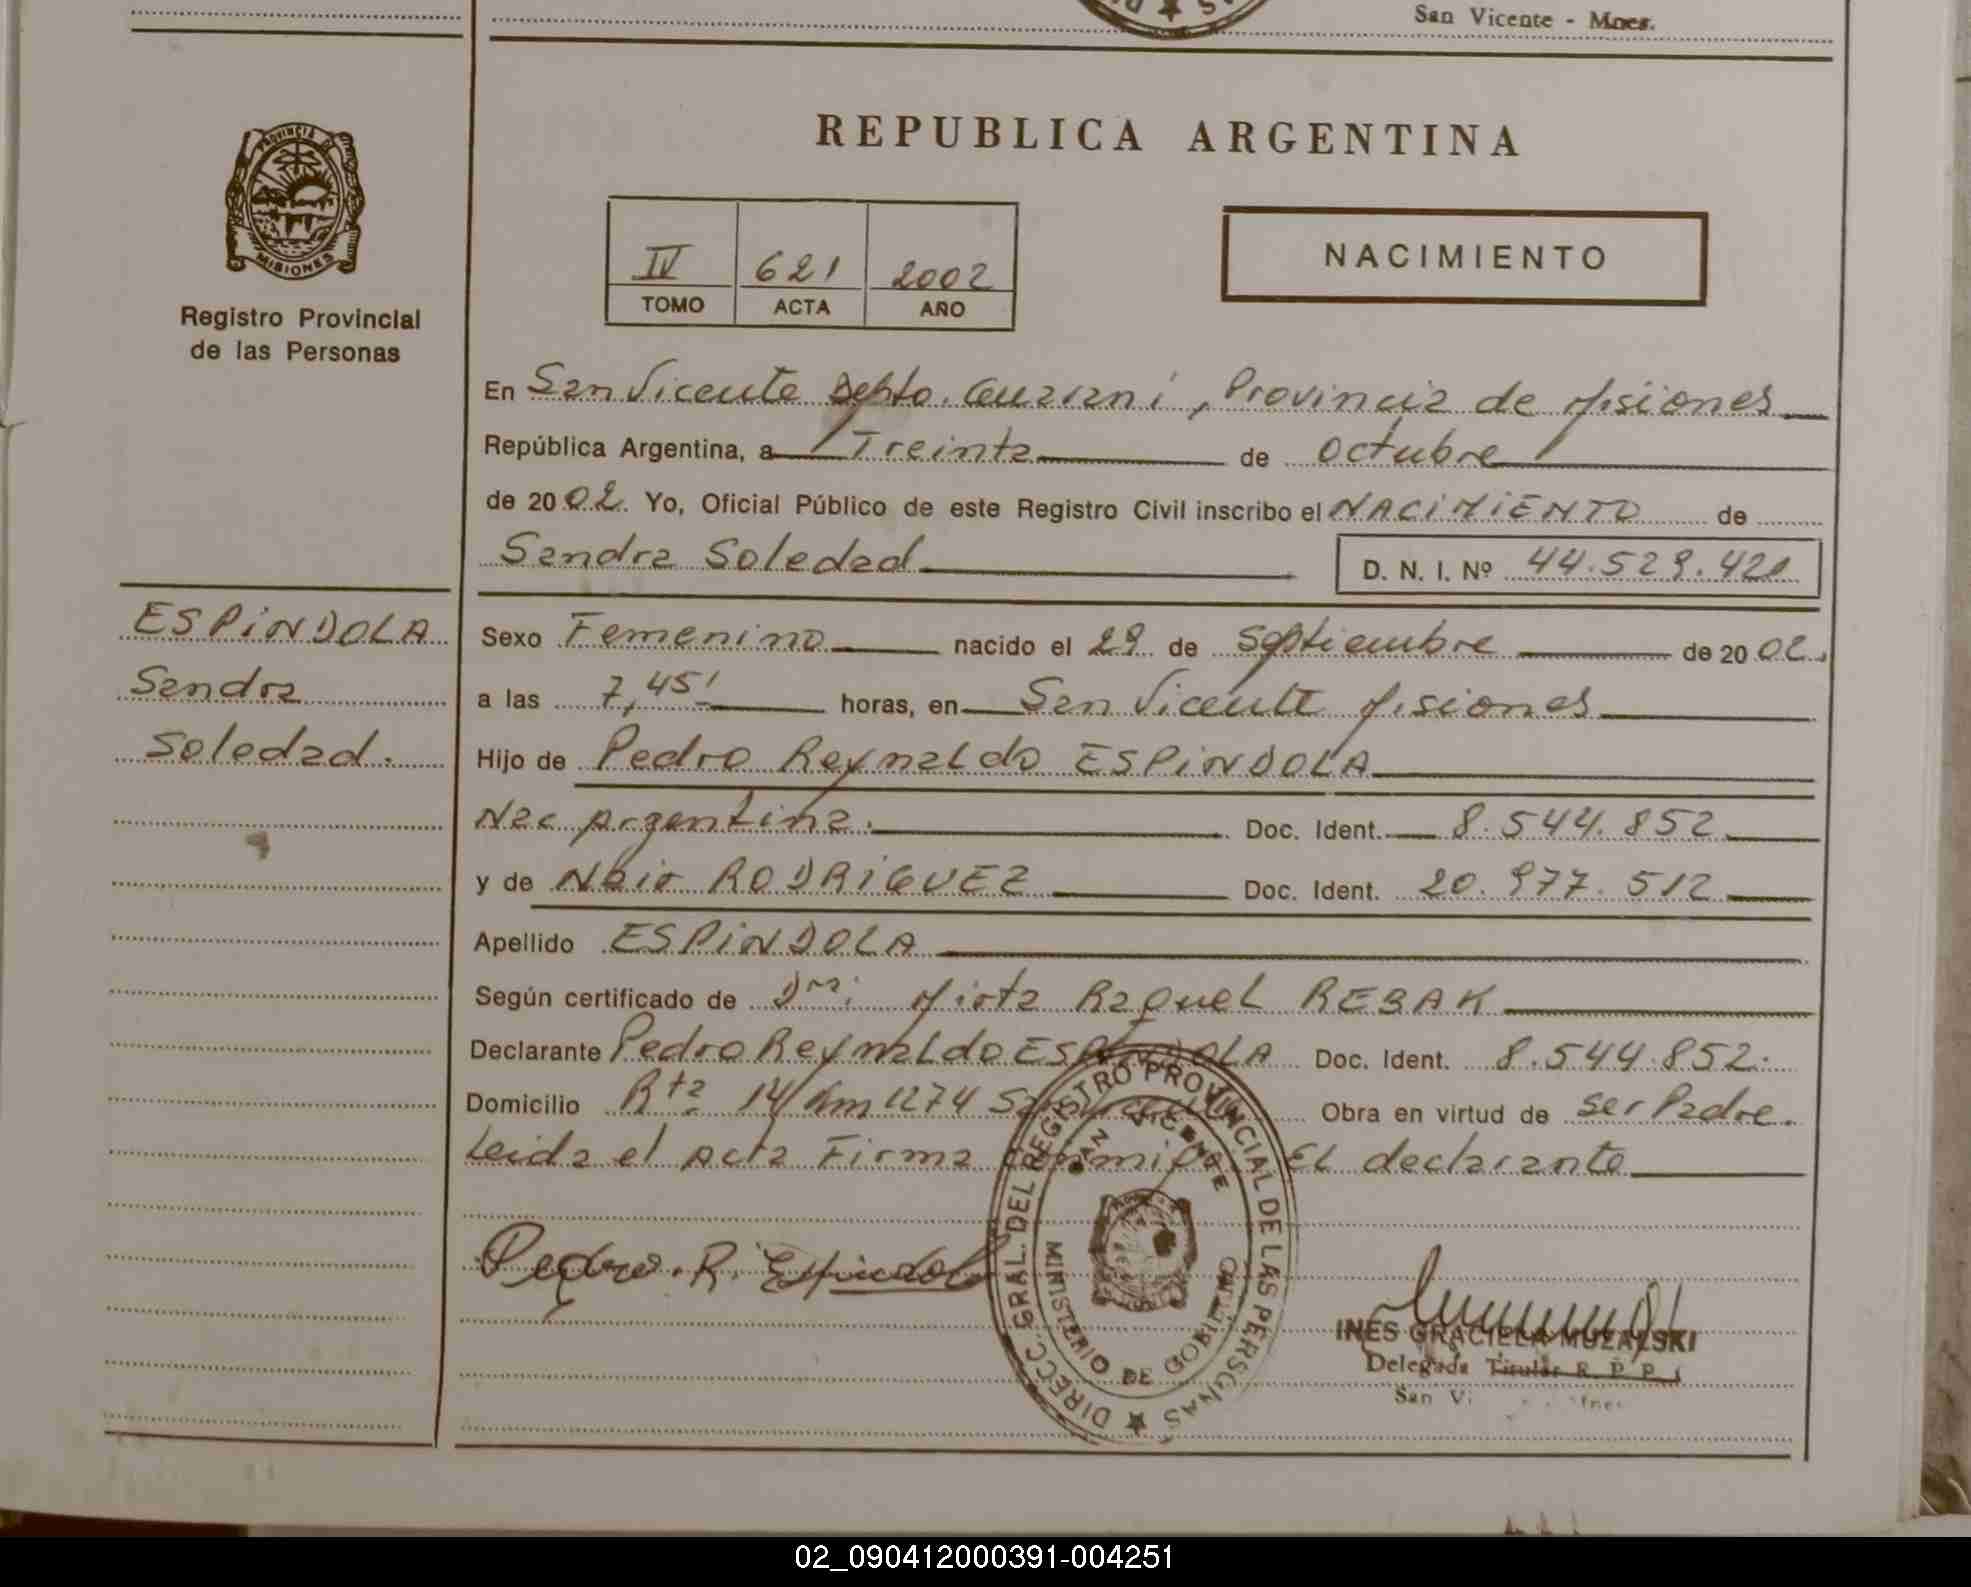 San Vicente - Mnes.
REPUBLICA ARGENTINA
PROVINCIA DE MISIONES
Registro Provincial
de las Personas
IV 621 2002
TOMO ACTA AÑO
NACIMIENTO
En San Vicente Depto. Guarani, Provincia de Misiones
República Argentina, a Treinta de octubre
de 2002. Yo, Oficial Público de este Registro Civil inscribo el NACIMIENTO de
Sandra Soledad D. N. I. Nº 44.529.421
ESPINDOLA
Sandra
Soledad.
Sexo Femenino nacido el 29 de Septiembre de 2002.
a las 7,45' horas, en San Vicente Misiones
Hijo de Pedro Reynaldo ESPINDOLA
Nac Argentina. Doc. Ident. 8.544.852
y de RODRIGUEZ Doc. Ident. 20.977.512
Apellido ESPINDOLA
Según certificado de Dra: Mirta Raquel REBAK
Declarante Pedro Reynaldo ESPINDOLA Doc. Ident. 8.544.852.
Domicilio Rta 14 Km 1274 San Vicente Obra en virtud de ser Padre.
Leida el acta Firma conmigo EL declarante
Pedro. R. Espindola
DIRECC. GRAL. DEL REGISTRO PROVINCIAL DE LAS PERSONAS
SAN VICENTE
MINISTERIO DE GOBIERNO
INES GRACIELA MUZALSKI
Delegada Titular R. P. P.
San Vi
02_090412000391-004251